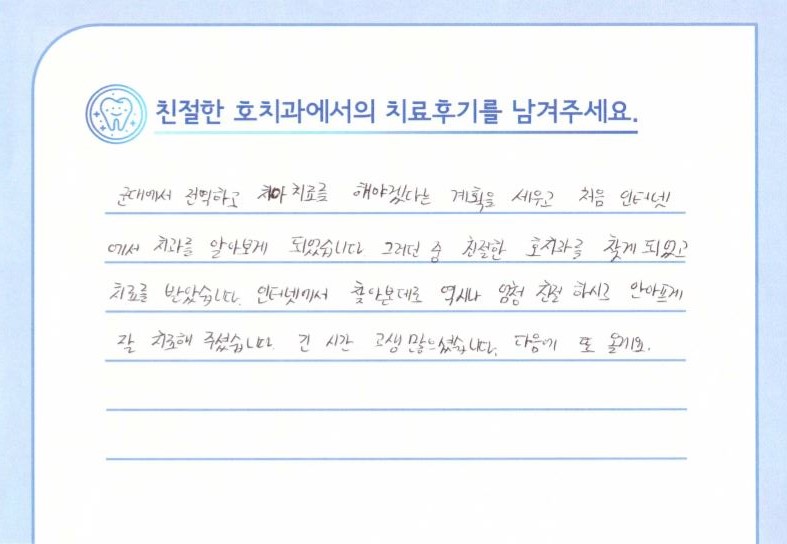 친절한 호치과에서의 치료후기를 남겨주세요.
군대에서 전역하고 치아 치료를 해야겠다는 계획을 세우고 처음 인터넷
에서 치과를 알아보게 되었습니다 그러던 중 친절한 호치과를 찾게 되었고
치료를 받았습니다. 인터넷에서 찾아본데로 역시나 엄청 친절 하시고 안아프게
잘 치료해 주셨습니다 긴 시간 고생 많으셨습니다. 다음에 또 올게요.